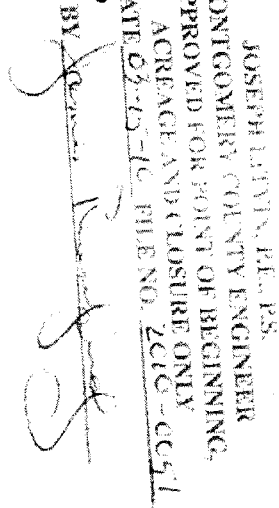 JOSEPH LITVIN, P.E., P.S.
ONTGOMERY COUNTY ENGINEER
PPROVED FOR POINT OF BEGINNING,
ACREAGE AND CLOSURE ONLY
ATE 03-15-10 FILE NO. 2010-0051
BY